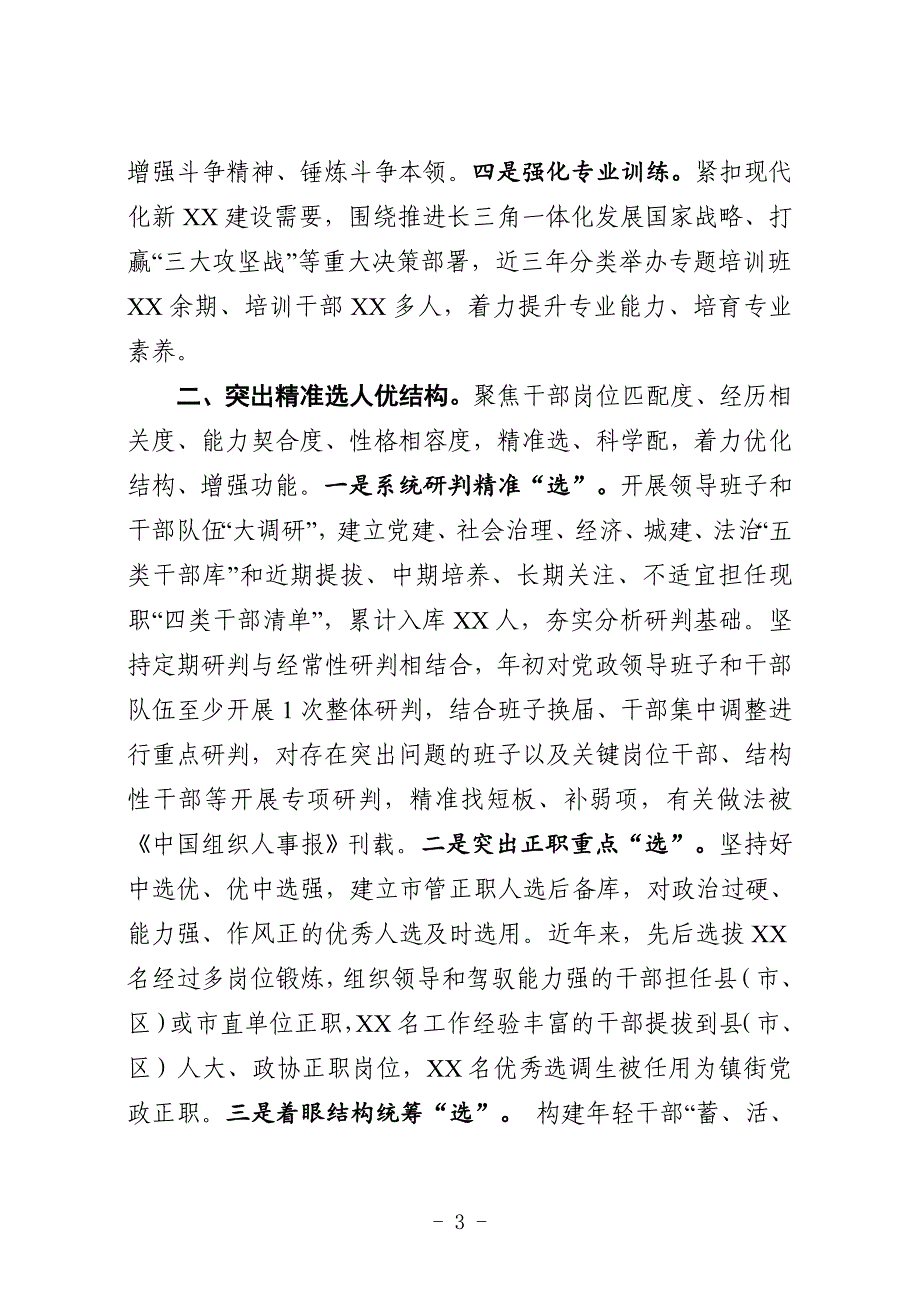 增强斗争精神、锤炼斗争本领。四是强化专业训练。紧扣现代
化新 XX 建设需要，围绕推进长三角一体化发展国家战略、打
赢“三大攻坚战”等重大决策部署，近三年分类举办专题培训班
XX 余期、培训干部 XX 多人，着力提升专业能力、培育专业
素养。
二、突出精准选人优结构。聚焦干部岗位匹配度、经历相
关度、能力契合度、性格相容度，精准选、科学配，着力优化
结构、增强功能。一是系统研判精准“选”。开展领导班子和
干部队伍“大调研”，建立党建、社会治理、经济、城建、法治“五
类干部库”和近期提拔、中期培养、长期关注、不适宜担任现
职“四类干部清单”，累计入库 XX 人，夯实分析研判基础。坚
持定期研判与经常性研判相结合，年初对党政领导班子和干部
队伍至少开展 1 次整体研判，结合班子换届、干部集中调整进
行重点研判，对存在突出问题的班子以及关键岗位干部、结构
性干部等开展专项研判，精准找短板、补弱项，有关做法被
《中国组织人事报》刊载。二是突出正职重点“选”。坚持好
中选优、优中选强，建立市管正职人选后备库，对政治过硬、
能力强、作风正的优秀人选及时选用。近年来，先后选拔 XX
名经过多岗位锻炼，组织领导和驾驭能力强的干部担任县（市、
区）或市直单位正职，XX 名工作经验丰富的干部提拔到县（市、
区）人大、政协正职岗位，XX 名优秀选调生被任用为镇街党
政正职。三是着眼结构统筹“选”。 构建年轻干部“蓄、活、
- 3 -